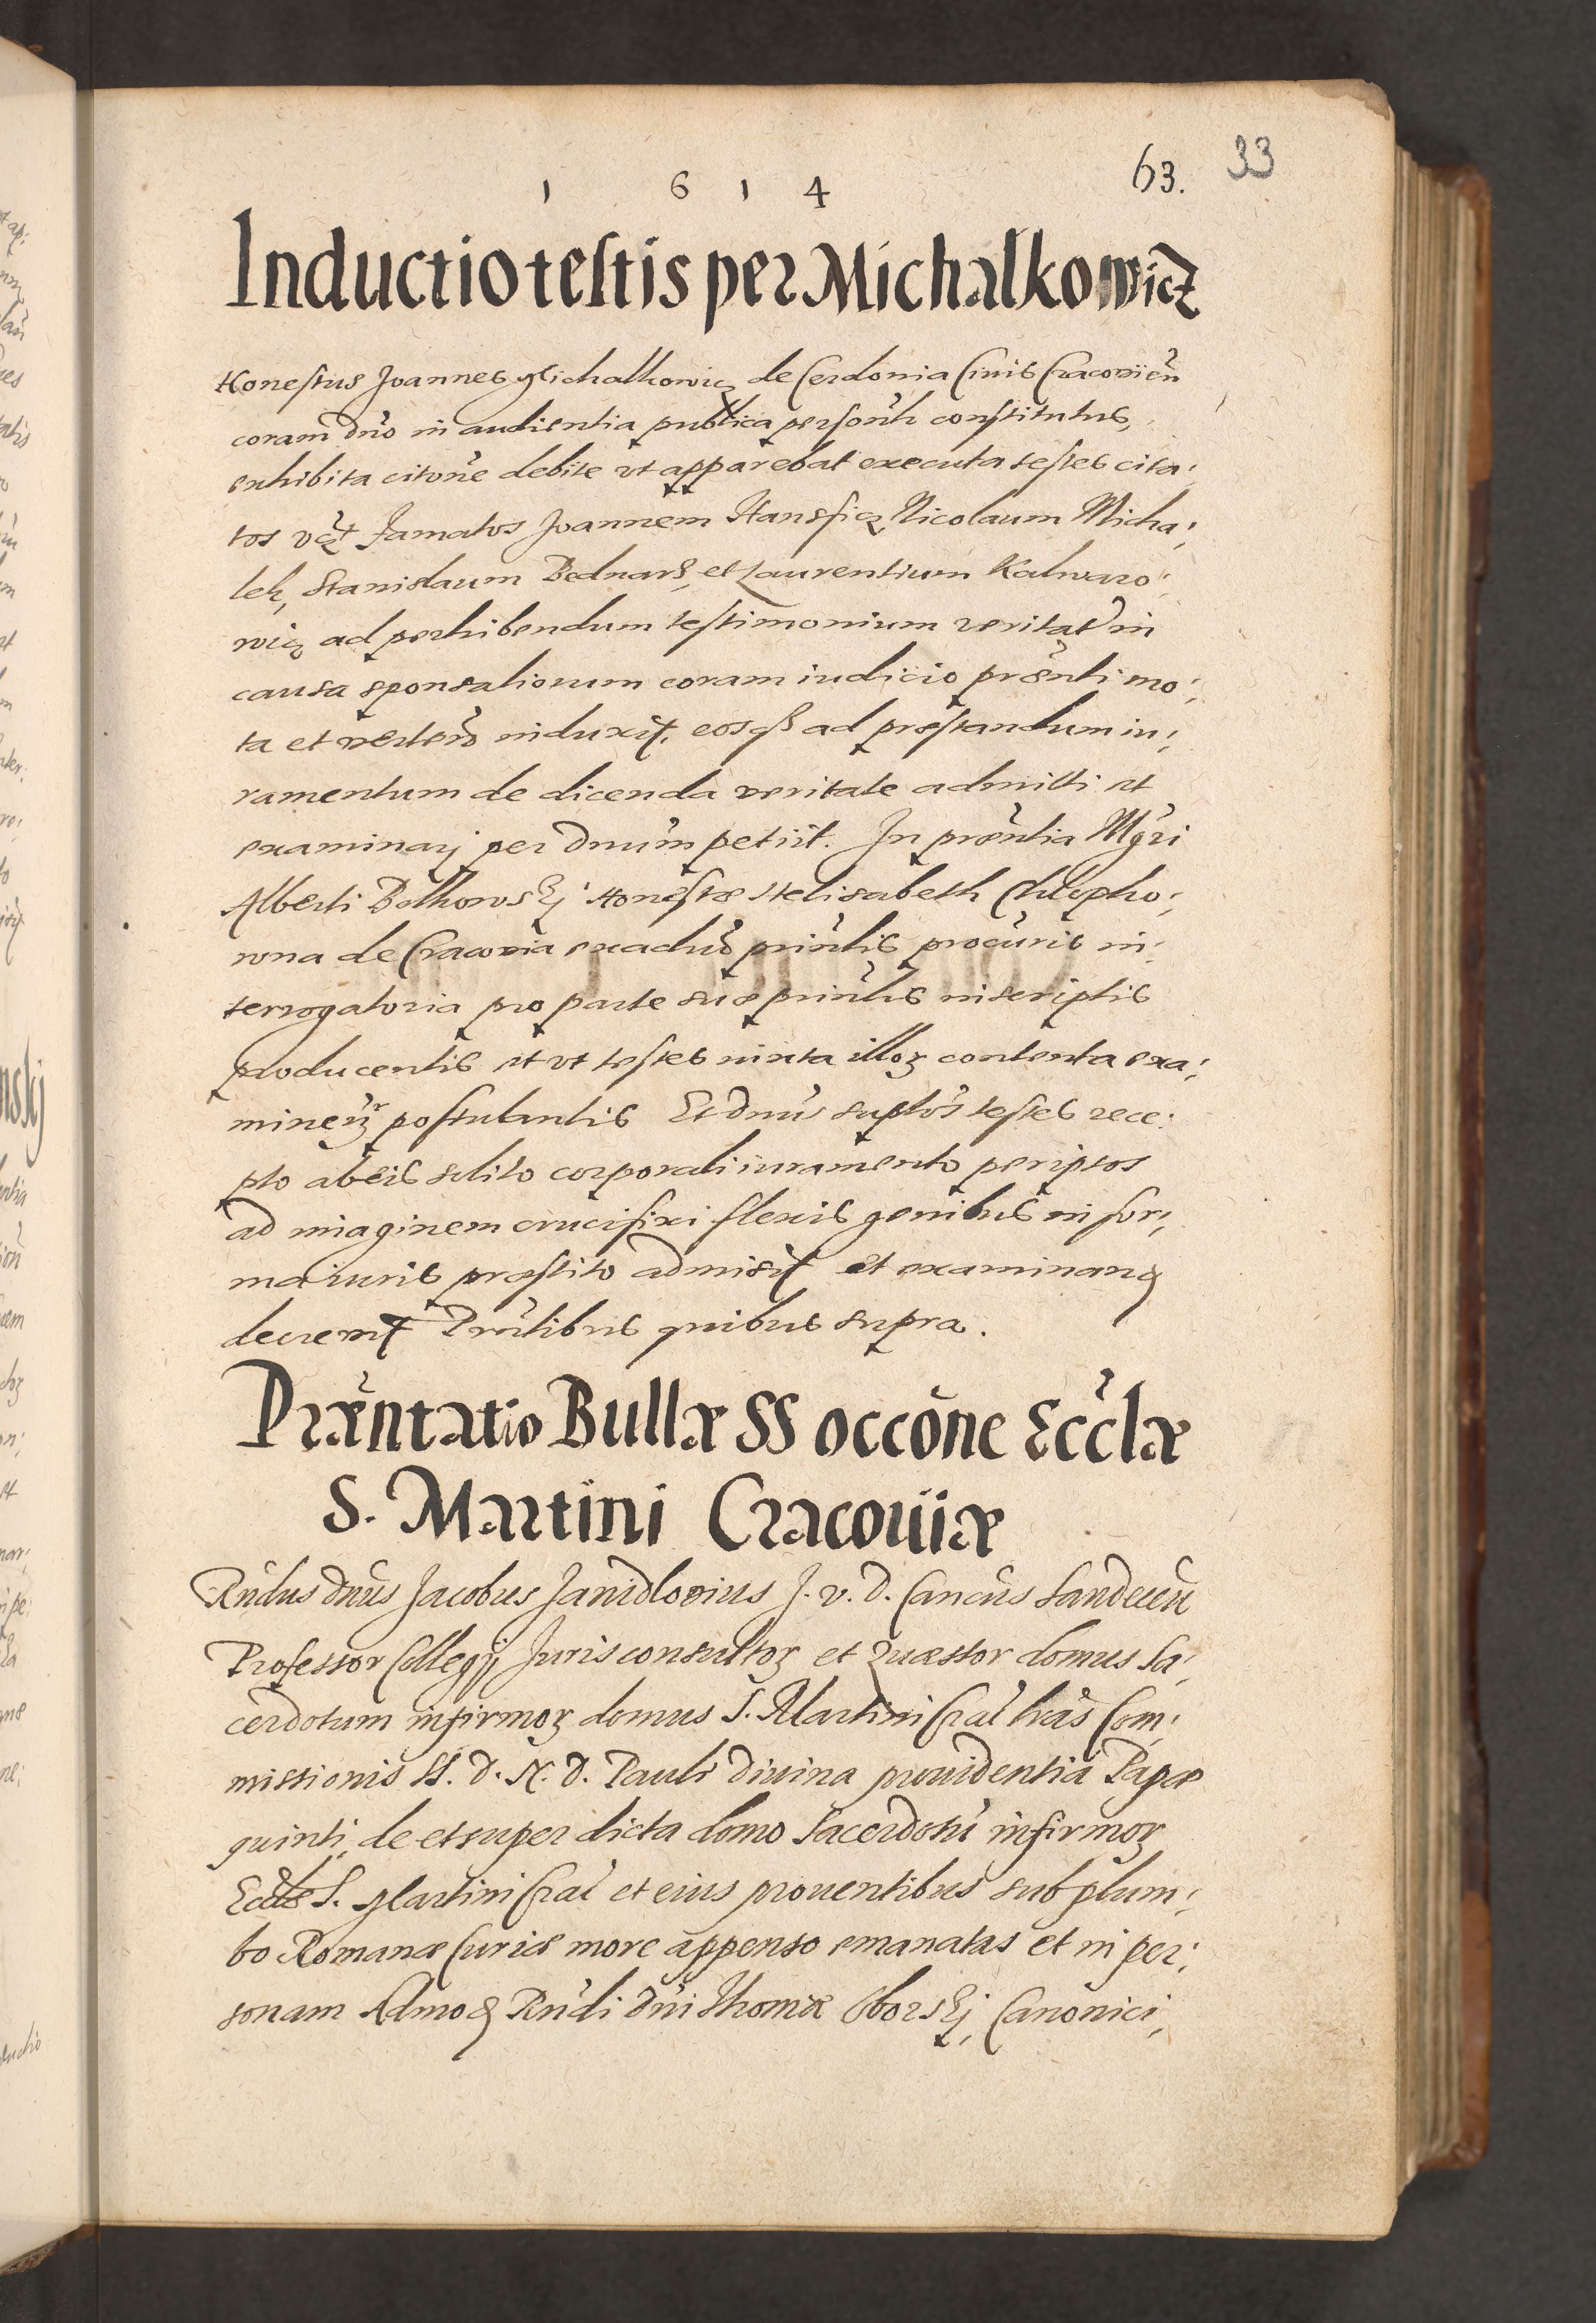 1 6 1 4 63. 33
Inductio testis per Michalkowicz
Honestus Joannes Michalkowicz de Cerdonia Ciuis Cracouien̄
coram dn̄o in audientia publica person̄lr constitutus,
exhibita citōne debite vt apparebat executa testes cita:
tos vczt Famatos Joannem Stansficz, Nicolaum Micha:
lek, Stanislaum Bednarz, et Laurentium Kalwaro:
wicz ad perhibendum testimonium veritatis in
causa sponsaliorum coram iudicio præn̄ti mo:
ta et verten̄ induxit, eosqȝ ad præstandum iu:
ramentum de dicenda veritate admitti et
examinarj per Dnūm petiit. In præn̄tia Mgr̄i
Alberti Belkowskj Honestæ Helisabeth Chlopko:
wna de Cracouia ex aduō prin̄lis procūris in:
terrogatoria pro parte suæ prin̄lis in scriptis
producentis et vt testes iuxta illorȝ contenta exa:
minent̄r postulantis Et dnūs suptōs testes rece:
pto ab eis solito corporali iuramento per ipsos
ad imaginem crucifixi flexis genibus in for:
ma iuris præstito admisit et examinandos
decreuit Pr̄ntibus quibus supra.
Præn̄tatio Bullæ SS occōne Eccl̄æ
S. Martini Cracouiæ
Rn̄dus dn̄us Jacobus Janidlouius J. V. D. Cancūs Sandecen̄
Professor Collegij Jurisconsultorȝ et Quæstor domus Sa:
cerdotum infirmorȝ domus S. Martini Cra͡c lr̄as Com:
missionis SS. D. N. D. Pauli diuina prouidentia Papæ
quinti, de et super dicta domo Sacerdotū infirmorȝ
Ecclæ S. Martini Cra͡c et eius prouentibus sub plum:
bo Romanæ Curiæ more appenso emanatas et in per:
sonam Admod Rn̄di Dn̄i Thomæ Oborskj, Canonici,